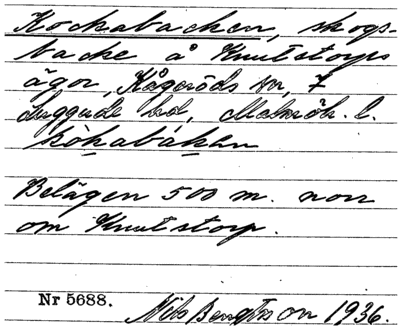 Kockabacken, skogs-
backe å Knutstorps
ägor, Kågeröds sn,
Luggude hd, Malmöh. l.
kòkabákɘn
Belägen 500 m. norr
om Knutstorp.
Nr 5688. Nils Bengtsson 1936.